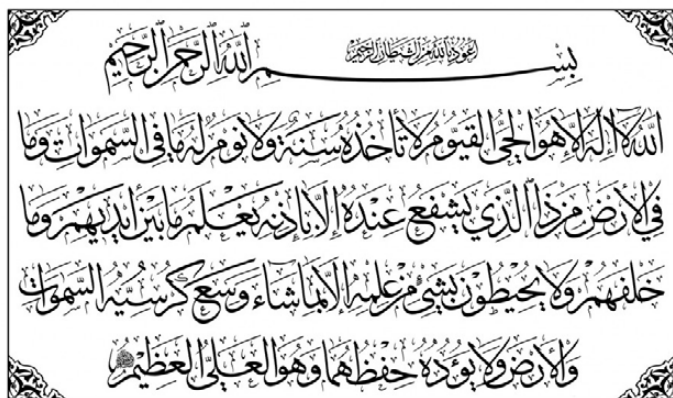 اعوذ بالله من الشيطان الرجيم
بسم الله الرحمن الرحيم
الله لا اله الا هو الحي القيوم لا تأخذه سنة ولا نوم له ما في السموات وما
في الأرض من ذا الذي يشفع عنده إلا بإذنه يعلم ما بين أيديهم وما
خلفهم ولا يحيطون بشيء من علمه إلا بما شاء وسع كرسيه السموات
والأرض ولا يؤده حفظهما وهو العلي العظيم